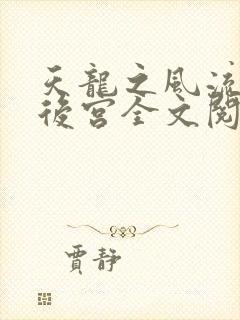 天龍之風流
後宮全文閱
賈靜